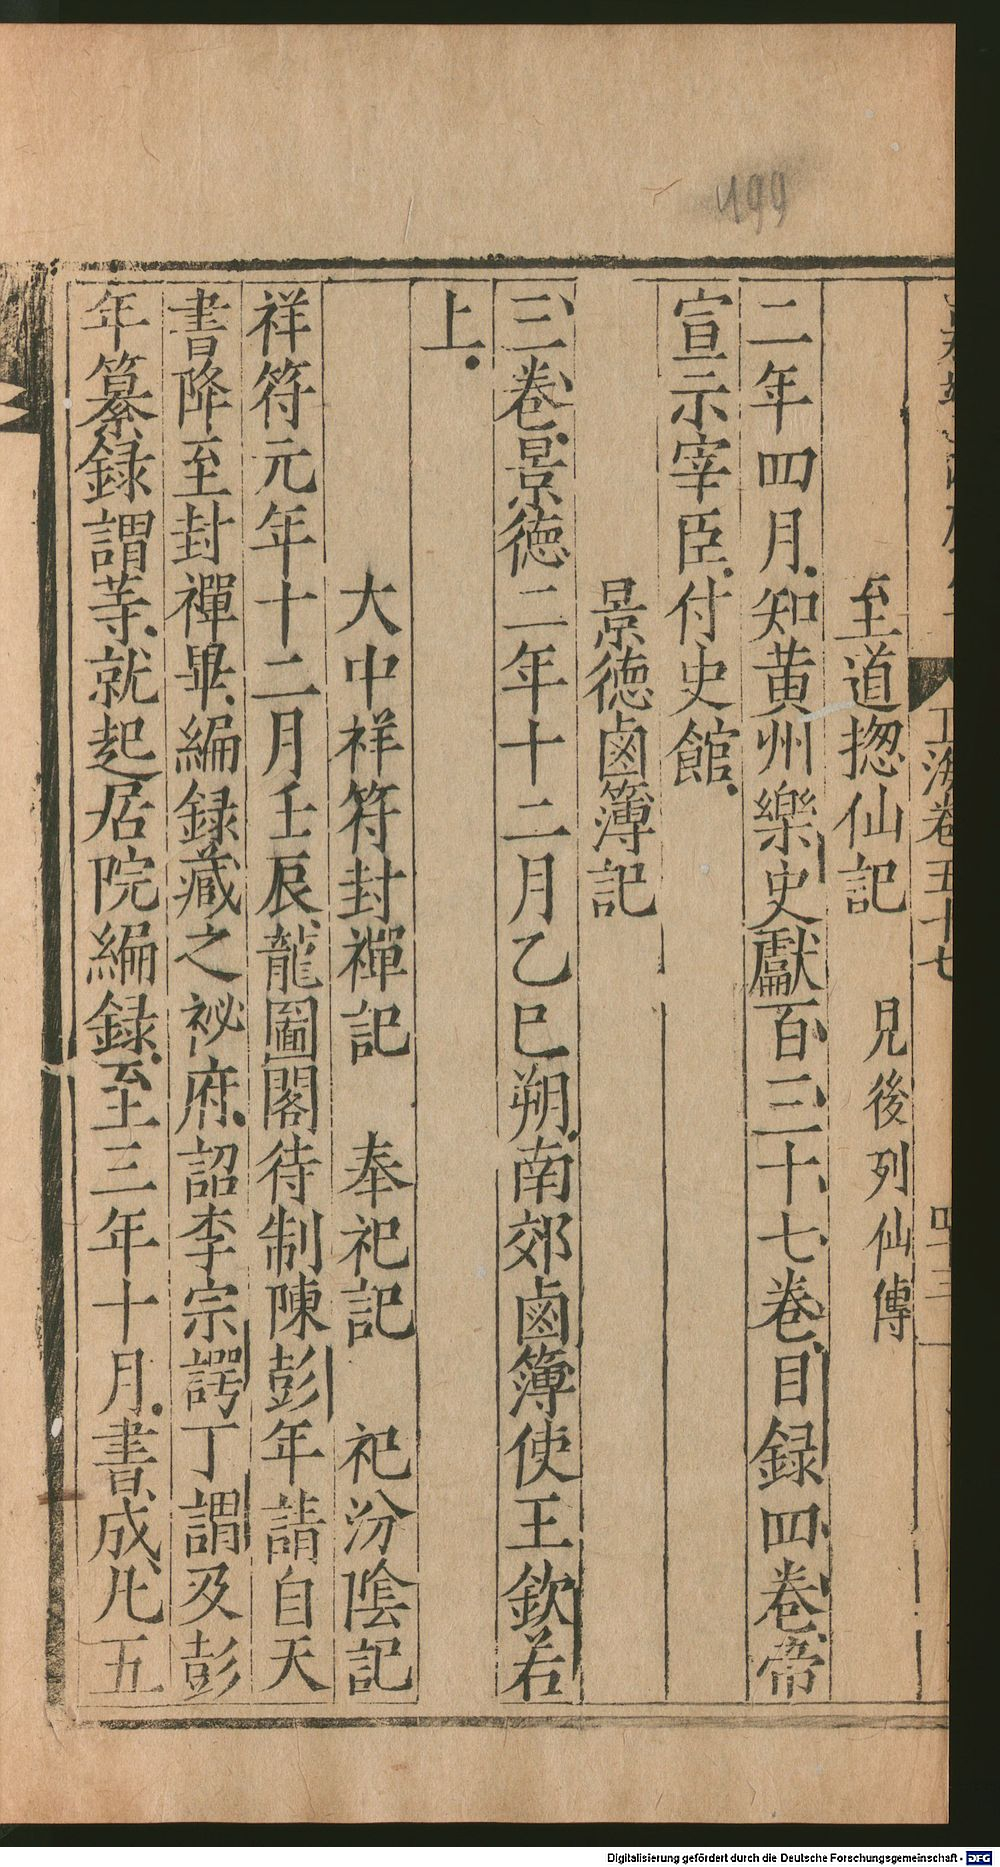 499
玉海卷五十七
至道揔仙記　見後列仙傳
二年四月知黄州樂史獻百三十七卷目録四卷帝
宣示宰臣付史館
景徳鹵簿記
三卷景徳二年十二月乙巳朔南郊鹵簿使王欽若
上
大中祥符封禪記　奉祀記　祀汾陰記
祥符元年十二月壬辰龍圖閣待制陳彭年請自天
書降至封禪畢編録藏之祕府詔李宗諤丁謂及彭
年纂録謂等就起居院編録至三年十月書成凡五
Digitalisierung gefördert durch die Deutsche Forschungsgemeinschaft - DFG